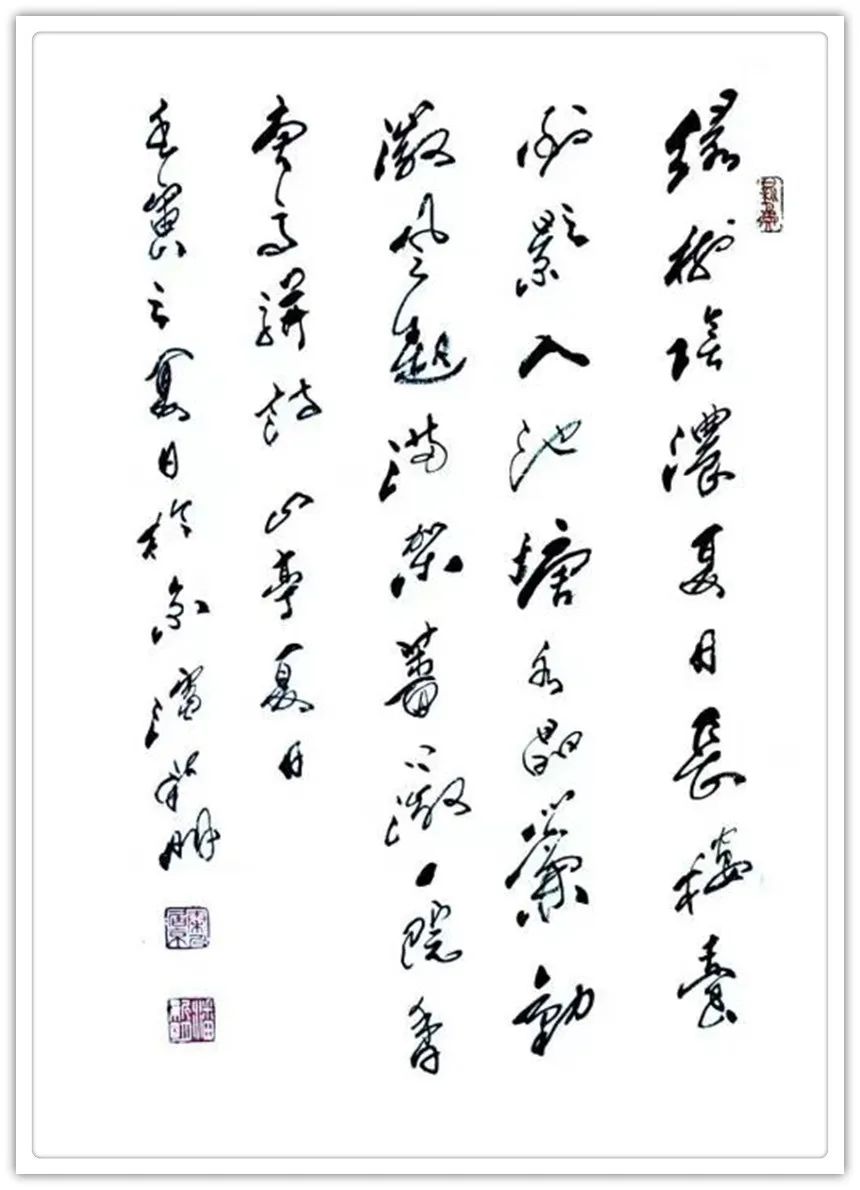 緑樹陰濃夏日長樓臺
倒影入池塘水晶簾動
微風起滿架薔薇一院香
唐高駢詩 山亭夏日
壬寅之夏日於京潘